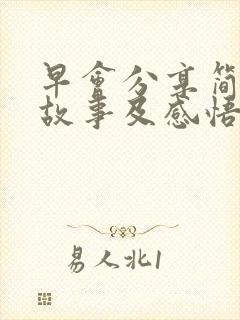 早會分享简
故事及感悟
易人北1